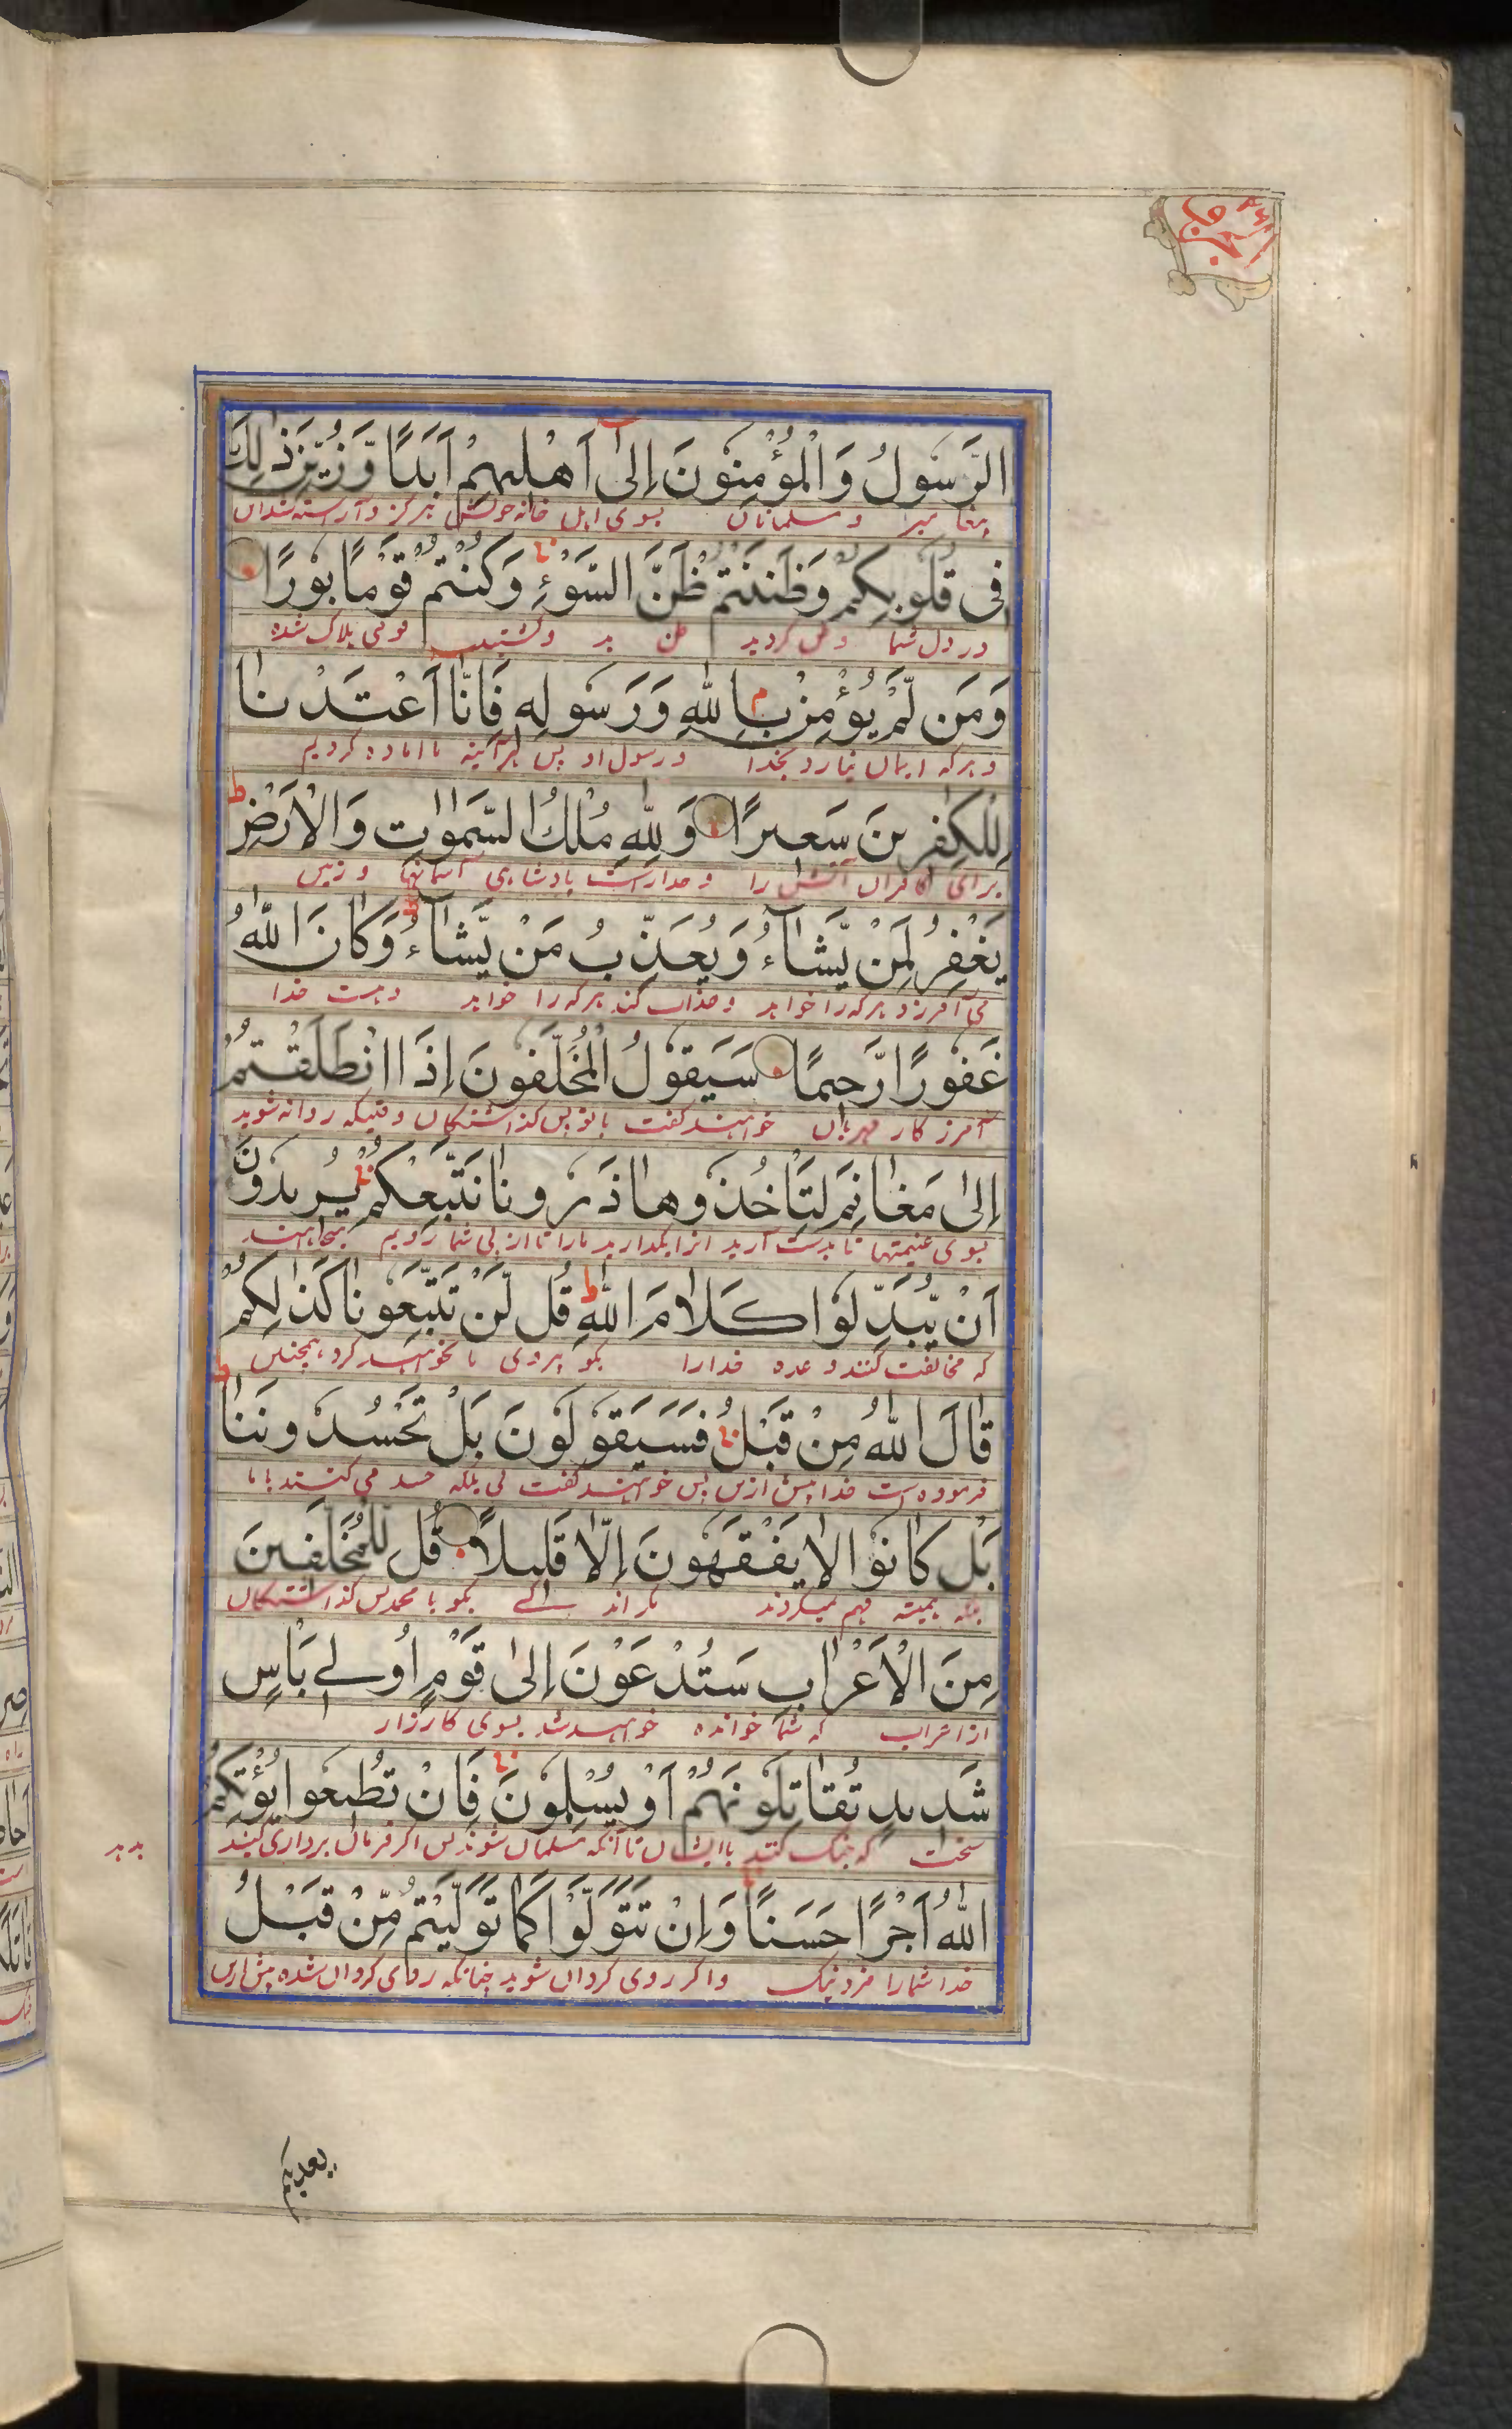 الرَّسُولُ وَالْمُؤْمِنُونَ اِلٰٓى اَهْلِيهِمْ اَبَدًا وَّزُيِّنَ ذٰلِكَ
پیغامبر و مسلمانان بسوی اهل خانه خویش هرگز و آراسته شد آن
فِى قُلُوبِكُمْ وَظَنَنْتُمْ ظَنَّ السَّوْءِ وَكُنْتُمْ قَوْمًا بُورًا
در دل شما و ظن کردید ظن بد و گشتید قومی هلاک شده
وَمَن لَّمْ يُؤْمِنْ بِاللّٰهِ وَرَسُولِهِ فَاِنَّا اَعْتَدْنَا
و هرکه ایمان نیارد بخدا و رسول او پس هرآینه ما اماده کردیم
لِلْكٰفِرِينَ سَعِيرًا وَلِلّٰهِ مُلْكُ السَّمٰوَاتِ وَالْاَرْضِ
برای کافران آتش را و خداراست بادشاهی آسمانها و زمین
يَغْفِرُ لِمَنْ يَّشَآءُ وَيُعَذِّبُ مَنْ يَّشَآءُ وَكَانَ اللّٰهُ
می آمرزد هرکه را خواهد و عذاب کند هرکه را خواهد و هست خدا
غَفُورًا رَّحِيمًا سَيَقُولُ الْمُخَلَّفُونَ اِذَا انْطَلَقْتُمْ
آمرزکار مهربان خواهند گفت باز پس گذاشتگان وقتیکه روانه شوید
اِلٰى مَغَانِمَ لِتَاْخُذُوهَا ذَرُونَا نَتَّبِعْكُمْ يُرِيدُونَ
بسوی غنیمتها تا بدست آرید انرا بگذارید مارا تا از پی شما رویم میخواهند
اَنْ يُّبَدِّلُوا كَلَامَ اللّٰهِ قُل لَّنْ تَتَّبِعُونَا كَذٰلِكُمْ
که مخالفت کنند وعده خدارا بگو پیروی ما نخواهید کرد همچنین
قَالَ اللّٰهُ مِنْ قَبْلُ فَسَيَقُولُونَ بَلْ تَحْسُدُونَنَا
فرموده است خدا پیش ازین پس خواهند گفت نی بلکه حسد می کنید با ما
بَلْ كَانُوا لَا يَفْقَهُونَ اِلَّا قَلِيلًا قُل لِلْمُخَلَّفِينَ
بلکه همیشه فهم نمیکردند مگر اندکے بگو با پس گذاشتگان
مِنَ الْاَعْرَابِ سَتُدْعَوْنَ اِلٰى قَوْمٍ اُولِے بَاْسٍ
از اعراب که شما خوانده خواهید شد بسوی کارزار
شَدِيدٍ تُقَاتِلُونَهُمْ اَوْ يُسْلِمُونَ فَاِنْ تُطِيعُوا يُؤْتِكُمُ
سخت که جنگ کنید با ایشان تا آنکه مسلمان شوند پس اگر فرمان برداری کنید
بدهد
اللّٰهُ اَجْرًا حَسَنًا وَاِنْ تَتَوَلَّوْا كَمَا تَوَلَّيْتُمْ مِّنْ قَبْلُ
خدا شمارا مزد نیک و اگر روی گردان شوید چنانکه روی گردان شده پیش ازین
یعذبکم